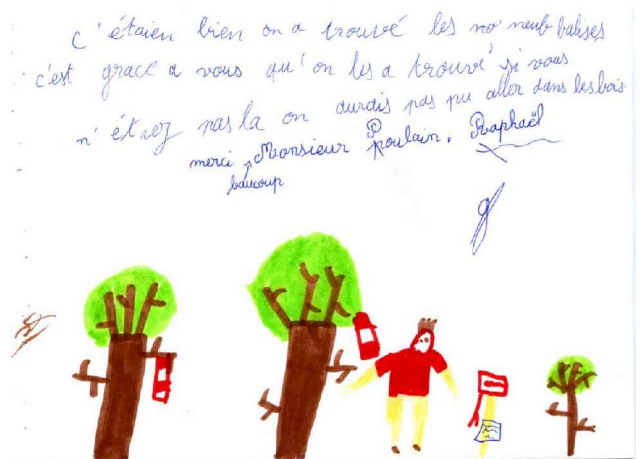 c'étaien bien on a trouvé les no neuf balises
c'est grace a vous qu'on les a trouvé si vous
n'étiez pas la on aurais pas pu aller dans les bois.
merci beaucoup Monsieur Poulain. Raphaël